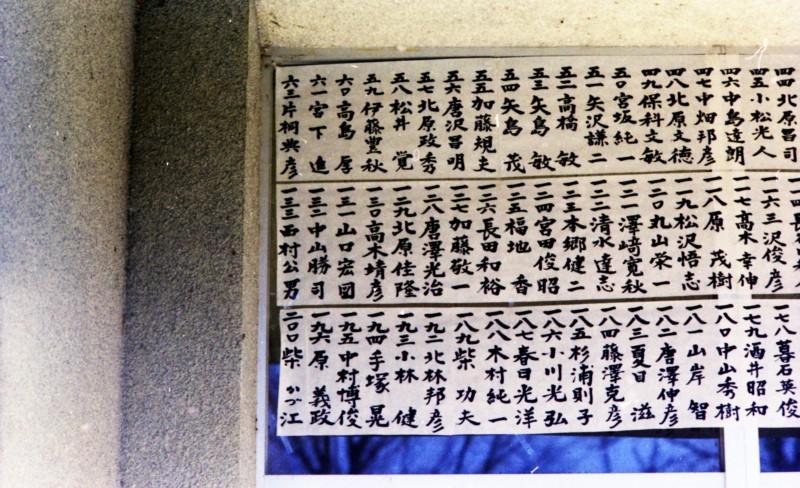 四四北原昌司
四五小松光人
四六中島達朗
四七中畑邦彦
四八北原文徳
四九保科文敏
五〇宮坂純一
五一矢沢謙二
五二高橋敏
五三矢島敏
五四矢島茂
五五加藤規夫
五六唐沢昌明
五七北原政秀
五八松井覚
五九伊藤豊秋
六〇高島厚
六一宮下進
六三片桐典彦
一一六三沢俊彦
一一七高木幸伸
一一八原茂樹
一一九松沢悟志
一二〇丸山栄一
一二一澤崎寛秋
一二二清水達志
一二三本郷健二
一二四宮田俊昭
一二五福地香
一二六長田和裕
一二七加藤敬一
一二八唐澤光治
一二九北原佳隆
一三〇高木靖彦
一三一山口宏図
一三二中山勝司
一三三西村公男
一七八暮石英俊
一七九酒井昭和
一八〇中山秀樹
一八一山岸智
一八二唐澤伸彦
一八三夏目滋
一八四藤澤克彦
一八五杉浦則子
一八六小川光弘
一八七春日光洋
一八八木村純一
一八九柴功夫
一九二北林邦彦
一九三小林健
一九四手塚晃
一九五中村博俊
一九六原義政
二〇〇柴かづ江